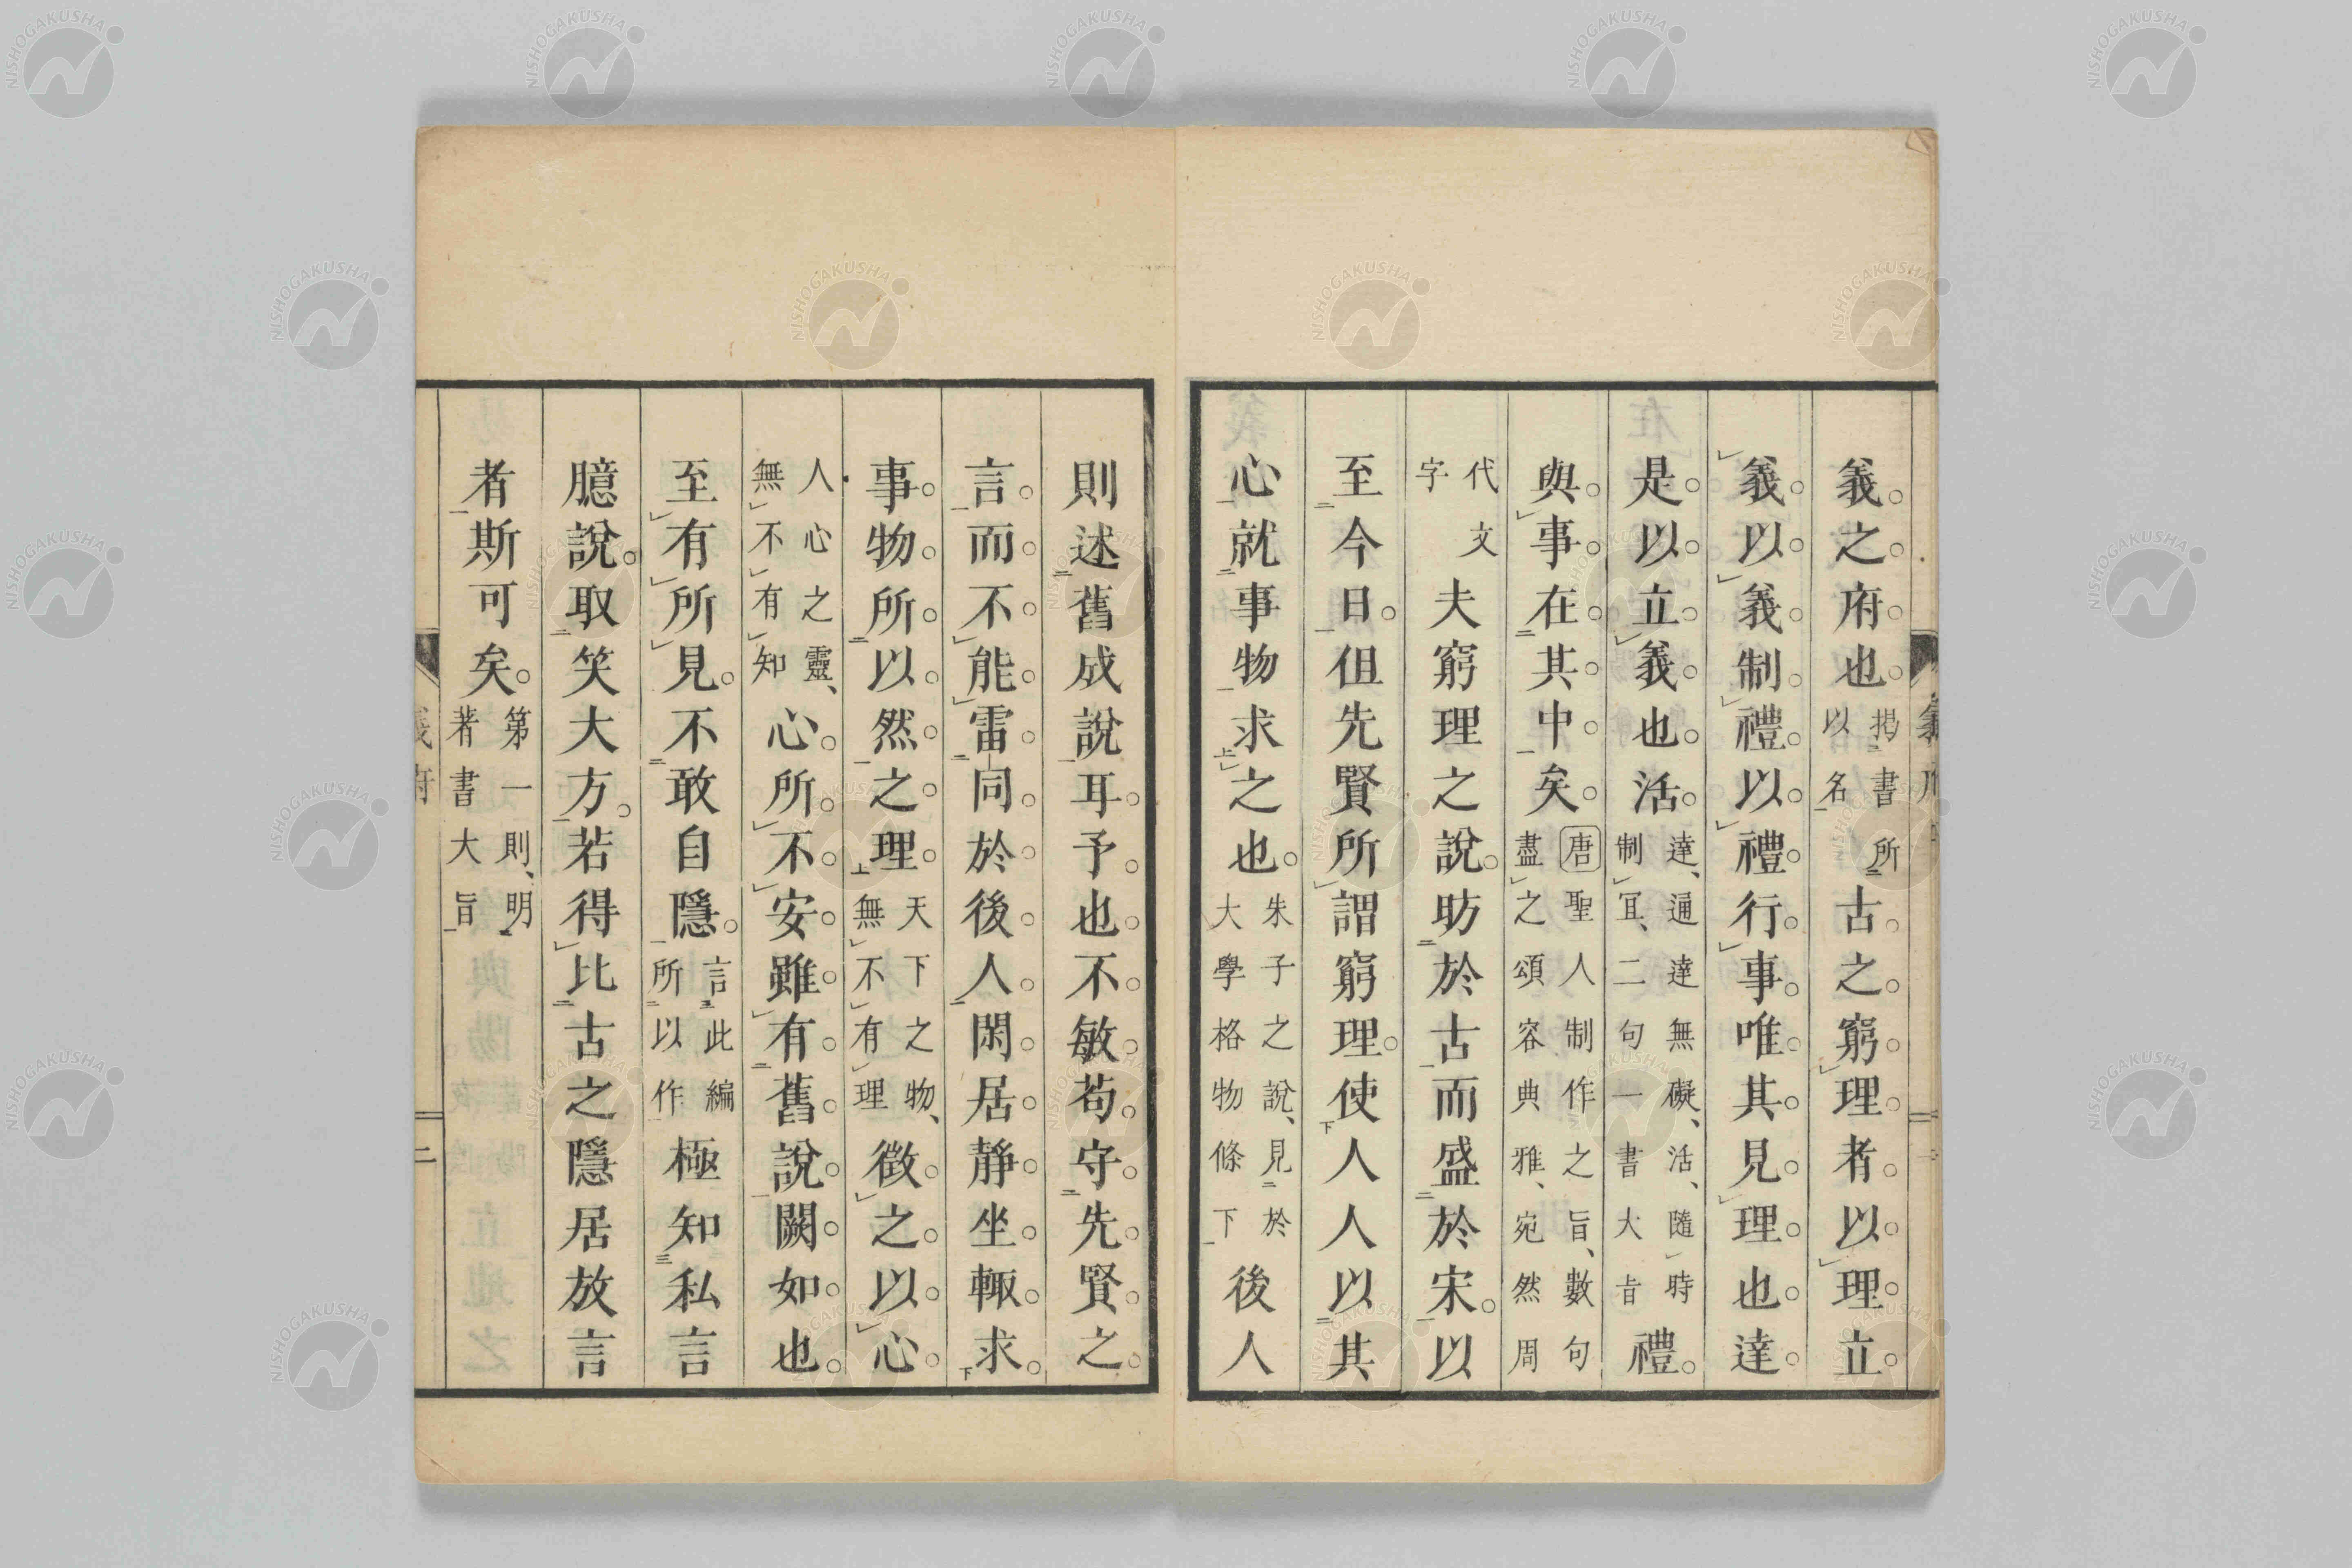 義。之。府。也。揭書所以名古。之。窮。理。者。以。理。立。
義。以。義。制。禮。以。禮。行。事。唯。其。見。理。也。達。
是。以。立。義。也。活。達、通達無礙、活、隨時制宜、二句一書大旨禮。
與。事。在。其。中。矣。唐聖人制作之旨、數句盡之頌容典雅、宛然周
代文字夫窮理之說。昉於古而盛於宋。以
至今日。伹先賢所謂窮理。使人人以其
心就事物求之也。朱子之說、見於大學格物條下後人
則述舊成說耳。予。也。不。敏。苟。守。先。賢。之。
言。而。不。能。雷。同。於。後。人。閑。居。靜。坐。輙。求。
事。物。所。以。然。之。理。天下之物、無不有理徵。之。以。心。
人心之靈、無不有知心。所。不。安。雖。有。舊。說。闕。如。也。
至有所見。不敢自隱。言此編所以作極知私言
臆說。取笑大方。若得比古之隱居放言
者斯可矣。第一則、明著書大旨
義府
二
NISHOGAKUSHA